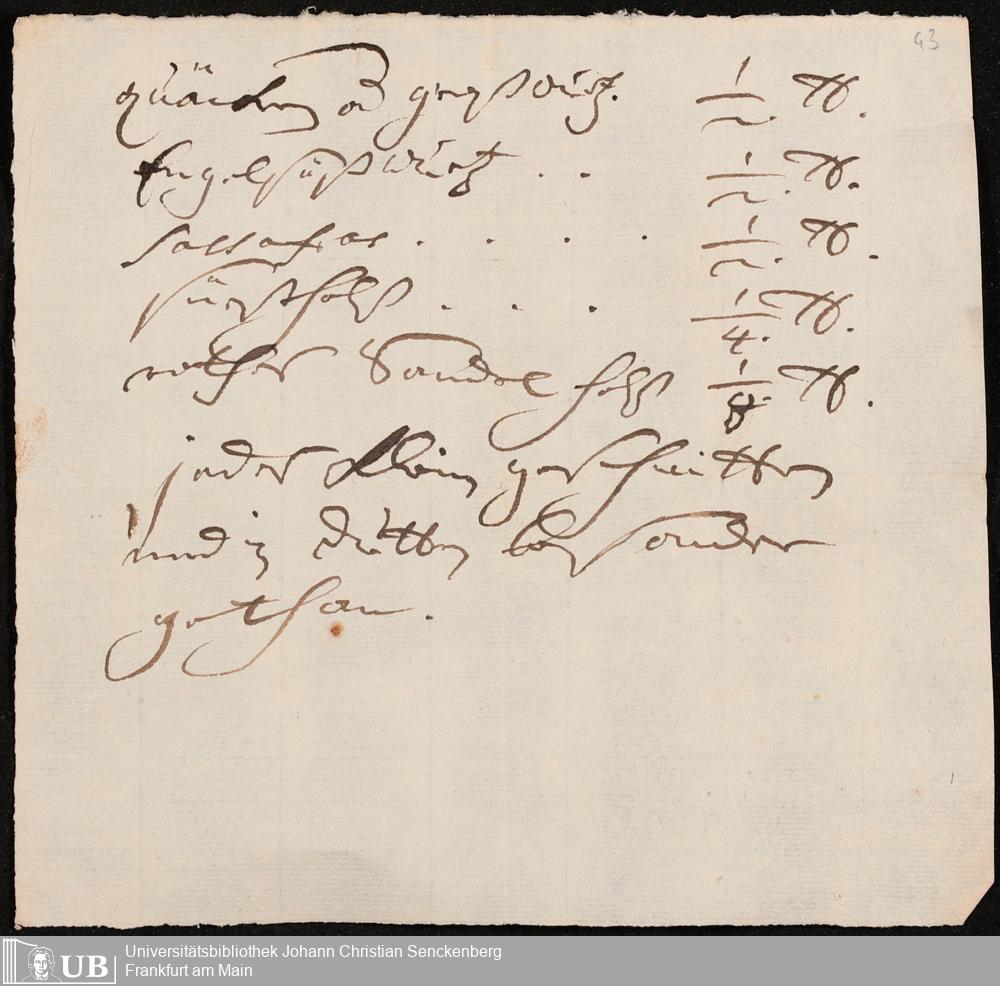 43
quäcken od graßwurtz. 1/2. ℔.
Engelsüßwurtz . . 1/2. ℔.
sassafras . . . . 1/2. ℔.
süeßholtz . . . 1/4. ℔.
rother Sandel holtz 1/8. ℔.
jedes klein geschnitten
und in dütten besonder
gethan.
UB
Universitätsbibliothek Johann Christian Senckenberg
Frankfurt am Main